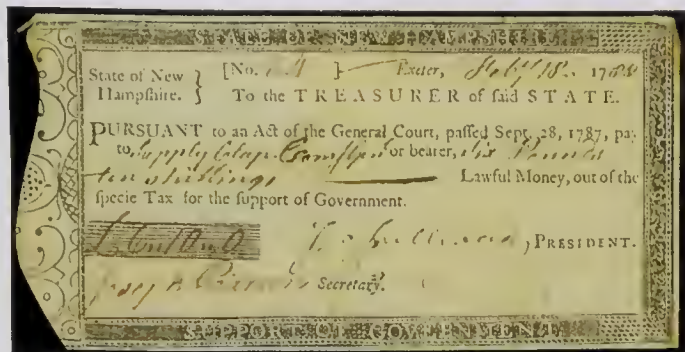 STATE OF NEW HAMPSHIRE
State of New Hampſhire. } [No. } Exeter, Feby 18. 1788
To the TREASURER of ſaid STATE.
PURSUANT to an Act of the General Court, paſſed Sept. 28, 1787, pay
to Supply Clap or bearer, Six Pounds
ten Shillings Lawful Money, out of the
ſpecie Tax for the ſupport of Government.
Jn⁰ Sullivan, PRESIDENT.
Joseph Pearson Secretary.
SUPPORT OF GOVERNMENT